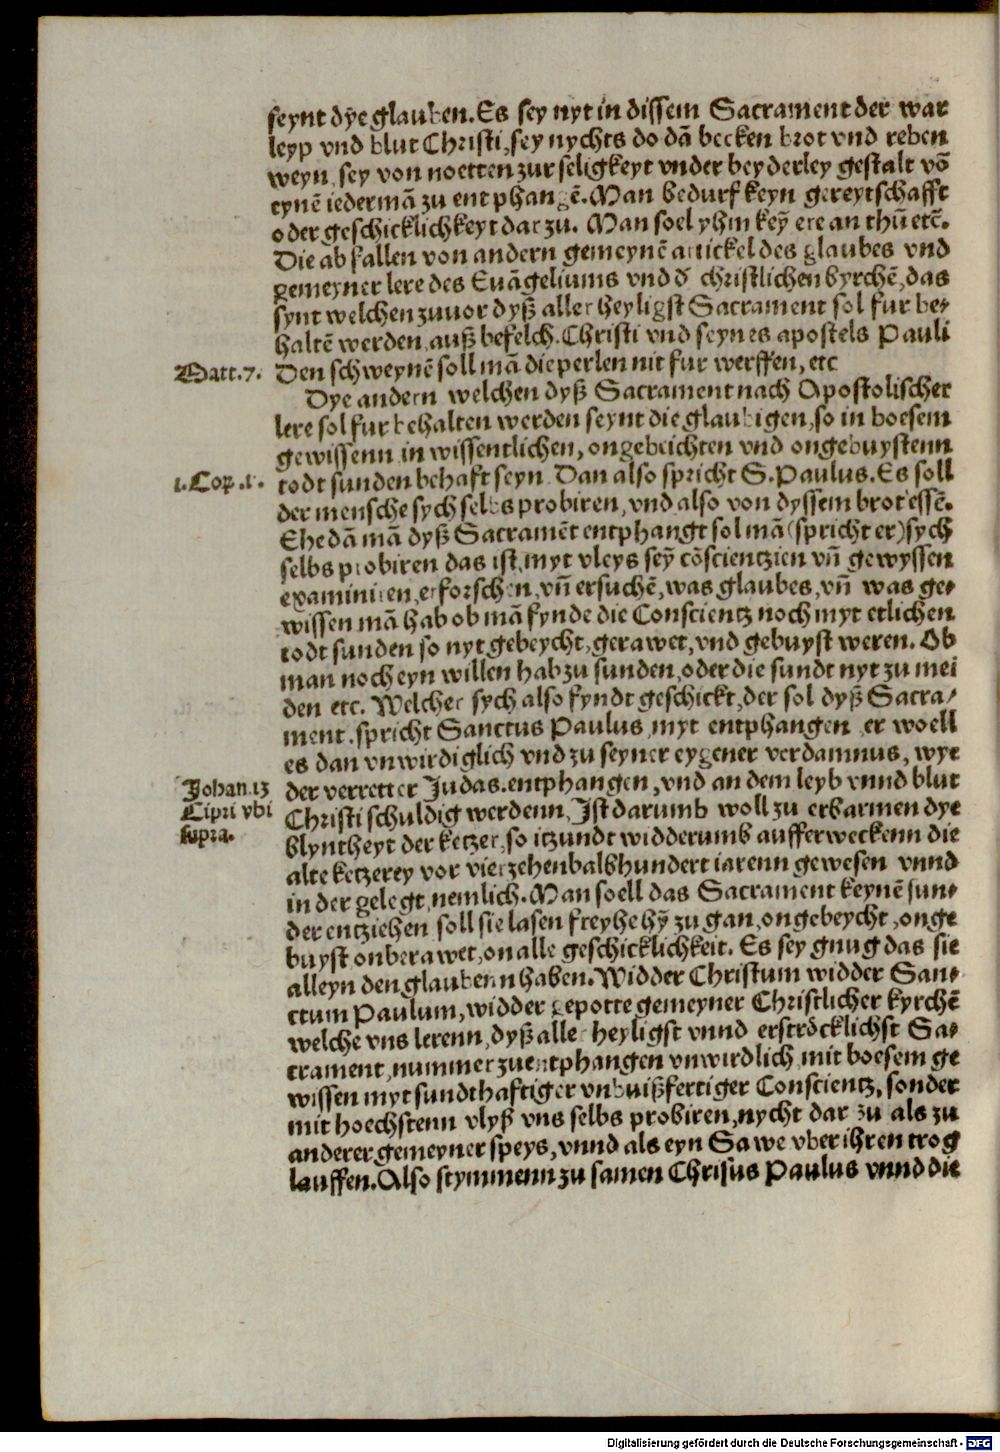 seynt dye glauben. Es sey nyt in dissem Sacrament der war
leyp vnd blut Christi, sey nychts do dā becken brot vnd reben
weyn, sey von noetten zur seligkeyt vnder beyderley gestalt vō
eynē iedermā zu entphangē. Man bedurf keyn gereytschafft
oder geschicklichkeyt dar zu. Man soel yhm keȳ ere an thū etc̄.
Die abfallen von andern gemeynē artickel des glaubes vnd
gemeyner lere des Euāgeliums vnd d̄ christlichen byrchē, das
synt welchen zuvor dyß aller heyligst Sacrament sol fur be-
haltē werden, auß befelch Christi vnd seynes apostels Pauli
Matt. 7. Den schweynē soll mā die perlen nit fur werffen, etc
Dye andern welchen dyß Sacrament nach Apostolischer
lere sol fur behalten werden seynt die glaubigen, so in boesem
gewissenn in wissentlichen, ongebeichten vnd ongebuystenn
1. Cor. 1. todt sunden behaft seyn. Dan also spricht S. Paulus. Es soll
der mensche sych selbs probiren, vnd also von dyssem brot essē.
Ehe dā mā dyß Sacramēt entphangt sol mā (spricht er) sych
selbs probiren das ist, myt vleys seȳ cōscientzien vn̄ gewyssen
examiniren, erforschen, vn̄ ersuchē, was glaubes, vn̄ was ge-
wissen mā hab ob mā fynde die Conscientz noch myt etlichen
todt sunden so nyt gebeycht, gerawet, vnd gebuyst weren. Ob
man noch eyn willen hab zu sunden, oder die sundt nyt zu mei
den etc. Welcher sych also fyndt geschickt, der sol dyß Sacra-
ment, spricht Sanctus Paulus, myt entphangen, er woell
es dan vnwirdiglich vnd zu seyner eygener verdamnus, wye
Johan. 13 der verretter Judas, entphangen, vnd an dem leyb vnnd blut
Cipri vbi Christi schuldig werdenn, Ist darumb woll zu erbarmen dye
supra. blyntheyt der ketzer, so itzundt widderumb aufferweckenn die
alte ketzerey vor vierzehenbalbhundert iarenn gewesen vnnd
in der gelegt, nemlich. Man soell das Sacrament keynē sun-
der entziehen, soll sie lasen frey hehȳ zu gan, ongebeycht, onge
buyst onberawet, on alle geschicklichkeit. Es sey gnug das sie
alleyn den glaubenn haben. Widder Christum widder San-
ctum Paulum, widder gepotte gemeyner Christlicher kyrchē
welche vns lerenn, dyß aller heyligst vnnd erströcklichst Sa-
crament, nummer zu entphangen vnwirdlich mit boesem ge
wissen myt sundthaftiger vnbuißfertiger Conscientz, sonder
mit hoechstenn vlyß vns selbs probiren, nycht dar zu als zu
anderer gemeyner speys, vnnd als eyn Sawe vber ihren trog
lauffen. Also stymmenn zu samen Chrisus Paulus vnnd die
Digitalisierung gefördert durch die Deutsche Forschungsgemeinschaft - DFG